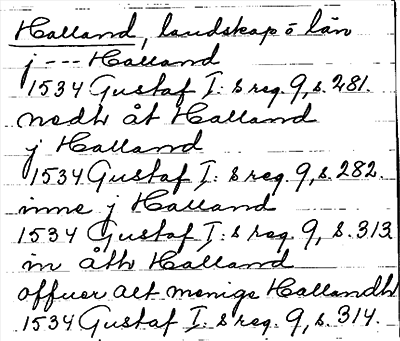 Halland, landskap o län
j --- Halland
1534 Gustaf I: s reg. 9, s. 281.
nedh åt Halland
j Halland
1534 Gustaf I: s reg. 9, s. 282.
inne j Halland
1534 Gustaf I: s reg. 9, s. 313
in åth Halland
offuer alt menige Hallandh
1534 Gustaf I: s reg. 9, s. 314.